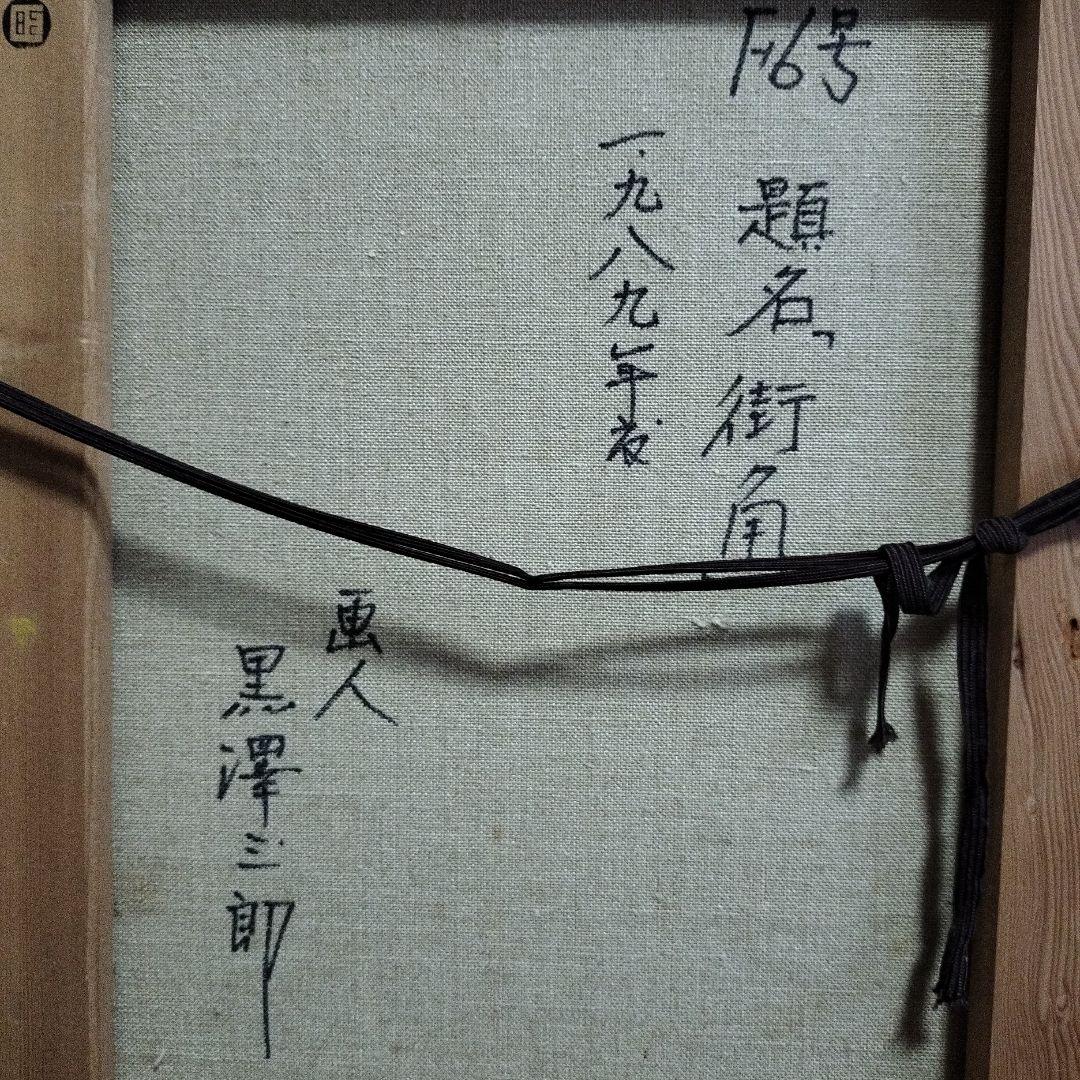 F6号
題名「街角
一九八九年
画人
黒澤三郎